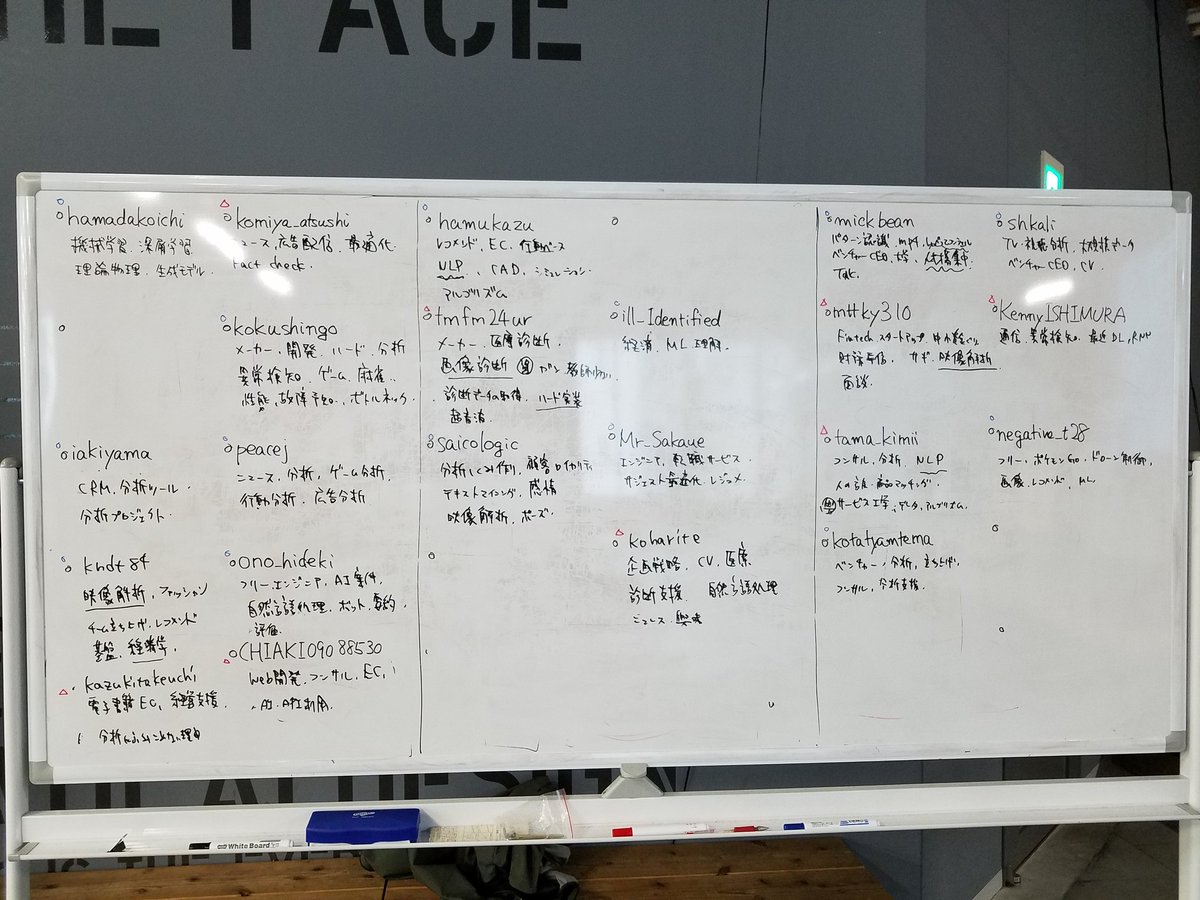 THE FACE
hamadakoichi
機械学習、深層学習
理論物理、生成モデル
komiya_atsushi
ニュース、広告配信、最適化
Fact check.
kokushingo
メーカー、開発、ハード、分析
異常検知、ゲーム、麻雀
性能、故障予知、ボトルネック
iakiyama
CRM、分析ツール
分析プロジェクト
peacej
ニュース、分析、ゲーム分析
行動分析、広告分析
kndt84
映像解析、ファッション
チーム立ち上げ、レコメンド
基盤、経済学
ono_hideki
フリーエンジニア、AI案件
自然言語処理、ボット、要約
評価
kazukitakeuchi
電子書籍EC、経営支援
分析
理由
CHIAKI09088530
Web開発、コンサル、EC
AI
hamukazu
レコメンド、EC、行動ベース
NLP、CAD、シミュレーション
アルゴリズム
tmfm24ur
メーカー、医療診断
画像診断
診断データの取得、ハード実装
超音波
ill_Identified
経済、ML理解
saicologic
分析しくみ作り、顧客ロイヤリティ
テキストマイニング、感情
映像解析、ポーズ
Mr_Sakaue
エンジニア、転職サービス
サジェスト最適化、レジュメ
koharite
企画戦略、CV、医療
診断支援、自然言語処理
ニュース、興味
mickbean
パターン認識、
ベンチャーCEO、大学、人材集中
Talk
shkali
TV、視聴分析、大規模データ
ベンチャーCEO、CV
mttky310
Fintech スタートアップ
財務与信、サポ、映像解析
面談
KennyISHIMURA
通信、異常検知、最近DL、RNN
tama_kimii
コンサル、分析、NLP
商品マッチング
サービス工学、データ、アルゴリズム
negative_t28
フリー、ポケモンGO、ドローン制御
画像、レコメンド、ML
kotatyamtema
ベンチャー、分析、立ち上げ
コンサル、分析支援
White Board